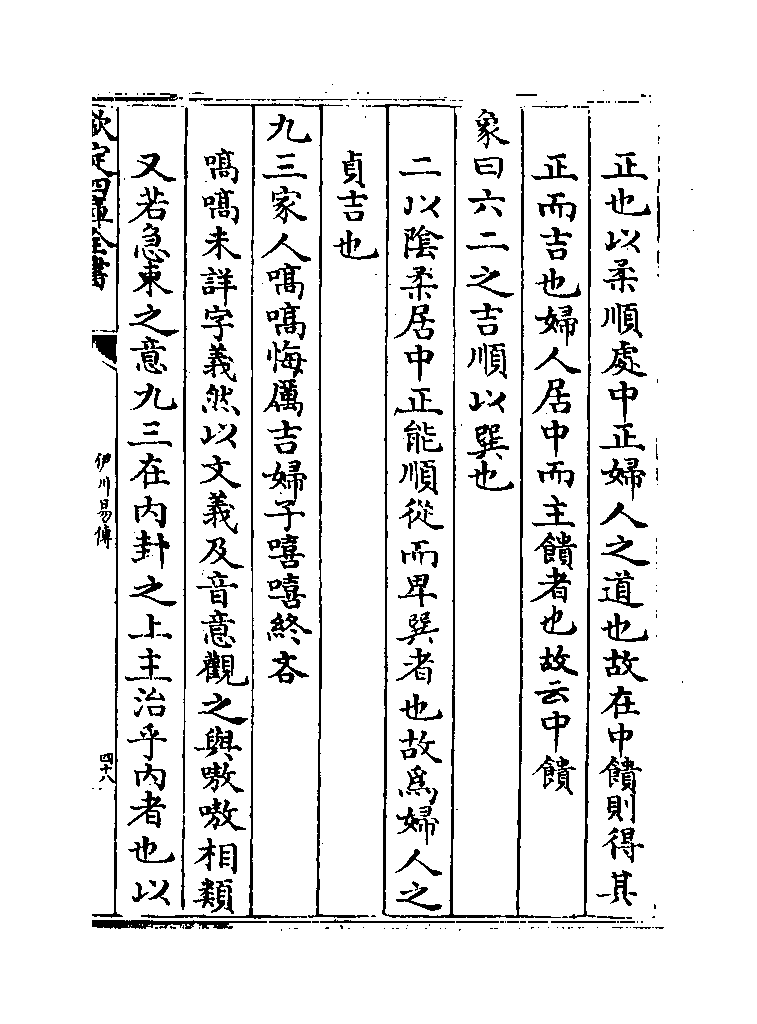 正也以柔順處中正婦人之道也故在中饋則得其
正而吉也婦人居中而主饋者也故云中饋
象曰六二之吉順以巽也
二以陰柔居中正能順從而卑巽者也故爲婦人之
貞吉也
九三家人嗃嗃悔厲吉婦子嘻嘻終吝
嗃嗃未詳字義然以文義及音意觀之與嗷嗷相類
又若急束之意九三在内卦之上主治乎内者也以
欽定四庫全書
伊川易傳
四十八